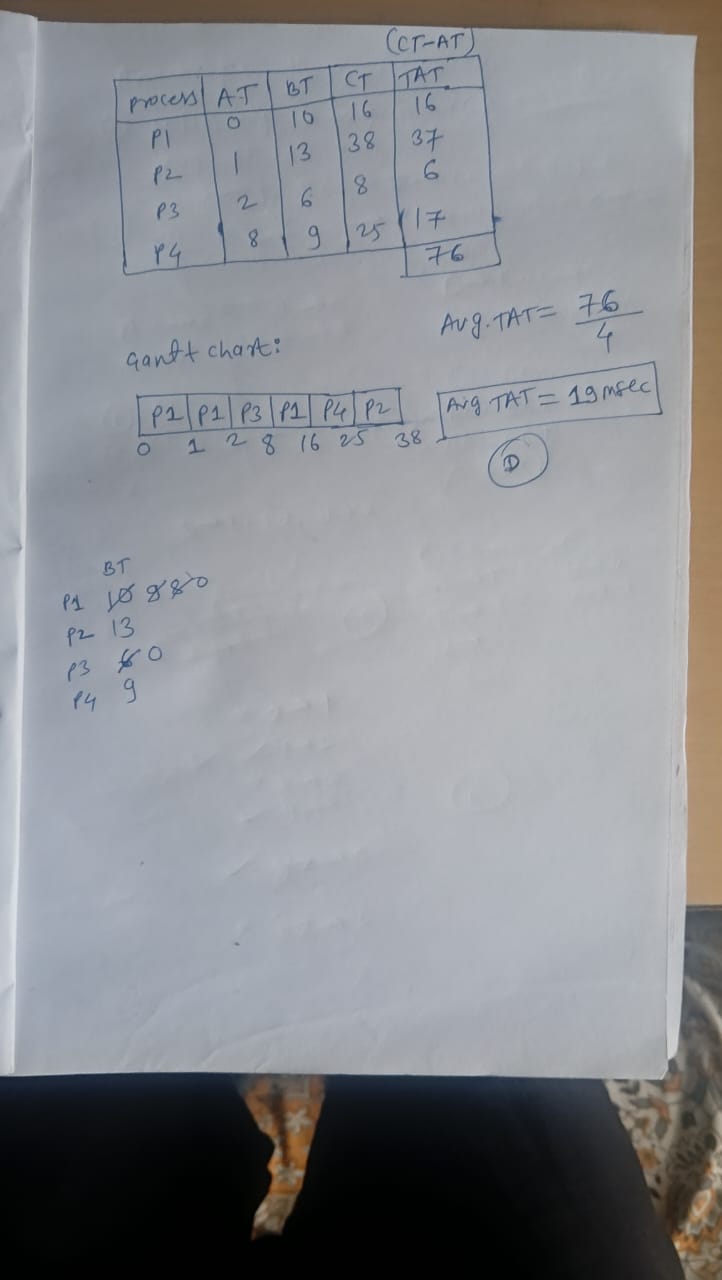 (CT-AT)
process AT BT CT TAT
P1 0 10 16 16
P2 1 13 38 37
P3 2 6 8 6
P4 8 9 25 17
76
Avg. TAT = 76
4
gantt chart:
P1 P1 P3 P1 P4 P2
0 1 2 8 16 25 38
Avg TAT = 19msec
D
BT
P1 10 9 8 0
P2 13
P3 6 0
P4 9